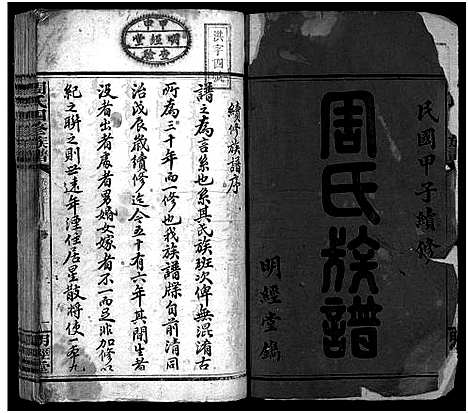 民國甲子續修
周氏族譜
明經堂鐫
洪字四號
甲申
明經堂
查驗
續修族譜序
譜之為言系也系其民族班次俾無混淆古
所為三十年而一修也我族譜牒自前清同
治戊辰歲續修迄今五十有六年其間生者
沒者出者處者男婚女嫁者不一而足非加修以
紀之聯之則世遠年湮住居星散將使一本九
周氏四修族譜
明經堂